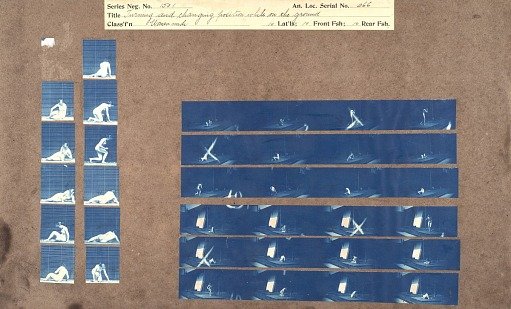 Series Neg. No. 1521 An. Loc. Serial No. 266
Title Turning and changing position while on the ground
Class'f'n Movements 12 Lat'ls: 12 Front Fsh: 12 Rear Fsh.